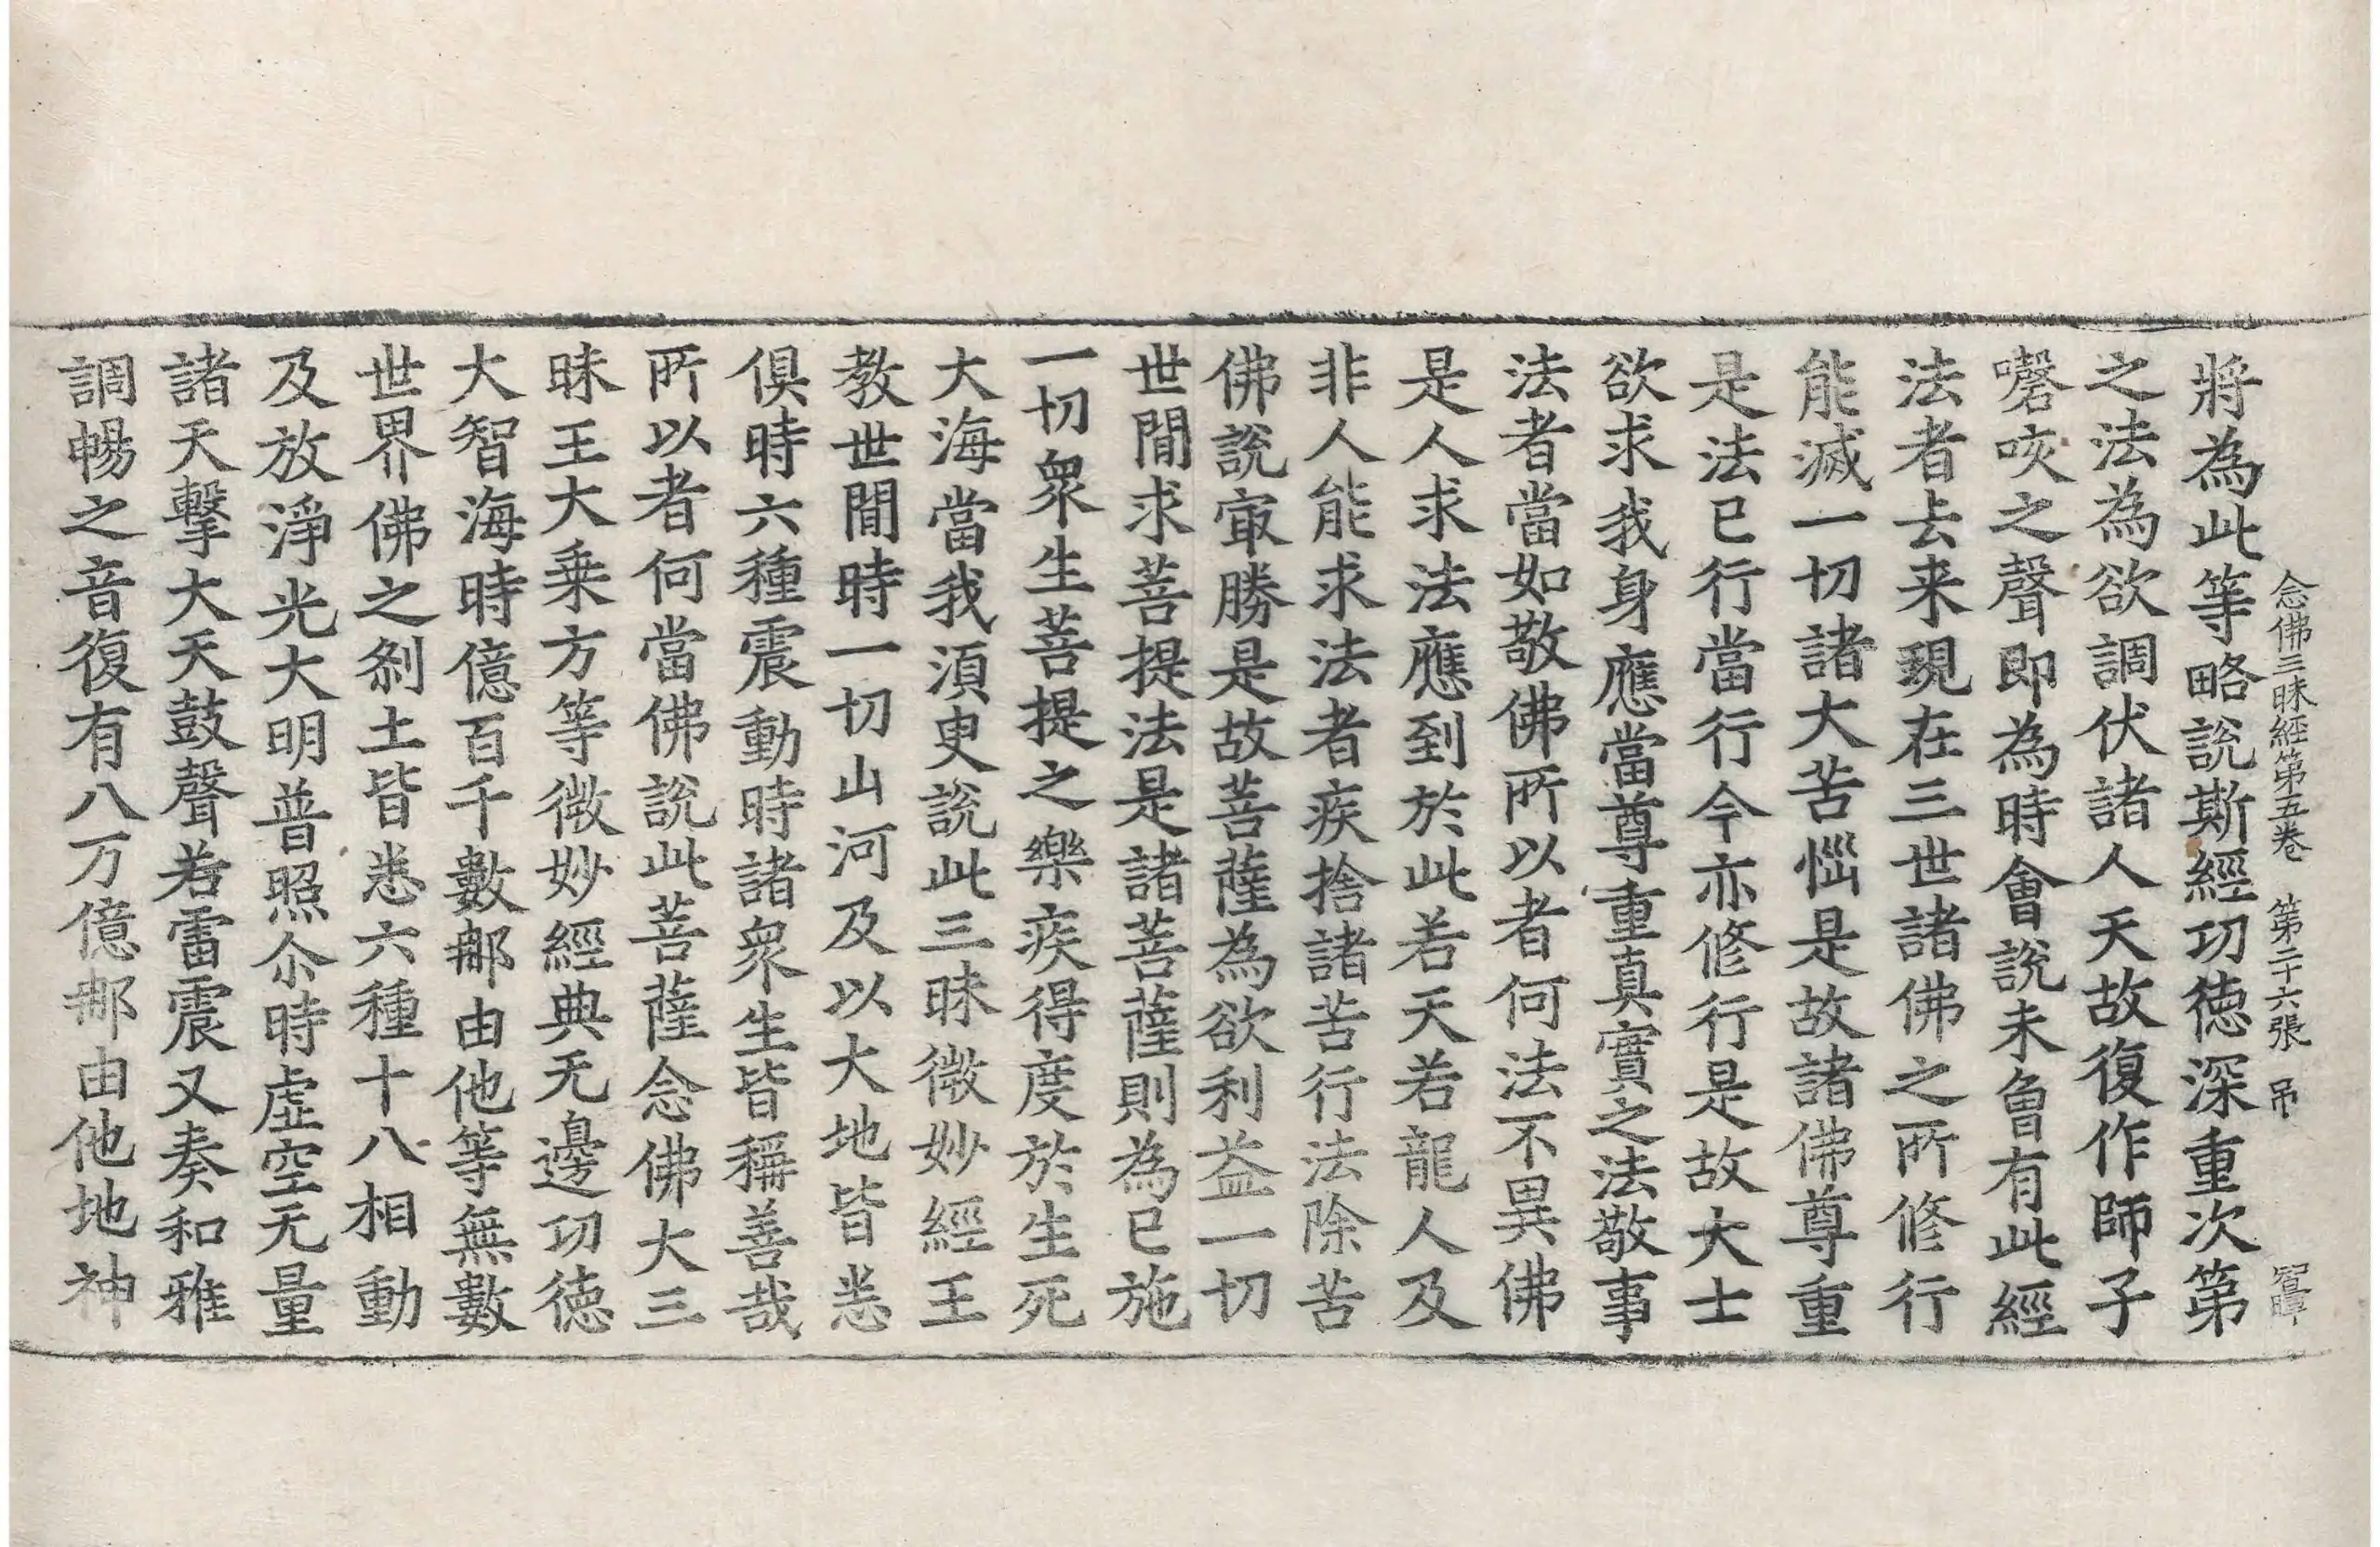 念佛三昧經第五卷 第二十六張 吊
將為此等略說斯經功徳深重次第
之法為欲調伏諸人天故復作師子
謦咳之聲即為時會說未曾有此經
法者去来現在三世諸佛之所修行
能滅一切諸大苦惱是故諸佛尊重
是法已行當行今亦修行是故大士
欲求我身應當尊重真實之法敬事
法者當如敬佛所以者何法不異佛
是人求法應到於此若天若龍人及
非人能求法者疾捨諸苦行法除苦
佛說㝡勝是故菩薩為欲利益一切
世間求菩提法是諸菩薩則為已施
一切衆生菩提之樂疾得度於生死
大海當我湏臾說此三昧微妙經王
教世間時一切山河及以大地皆悉
俱時六種震動時諸衆生皆稱善哉
所以者何當佛說此菩薩念佛大三
昧王大乗方等微妙經典无邊功徳
大智海時億百千數那由他等無數
世界佛之刹土皆悉六種十八相動
及放淨光大明普照尒時虛空无量
諸天擊大天鼓聲若雷震又奏和雅
調暢之音復有八万億那由他地神